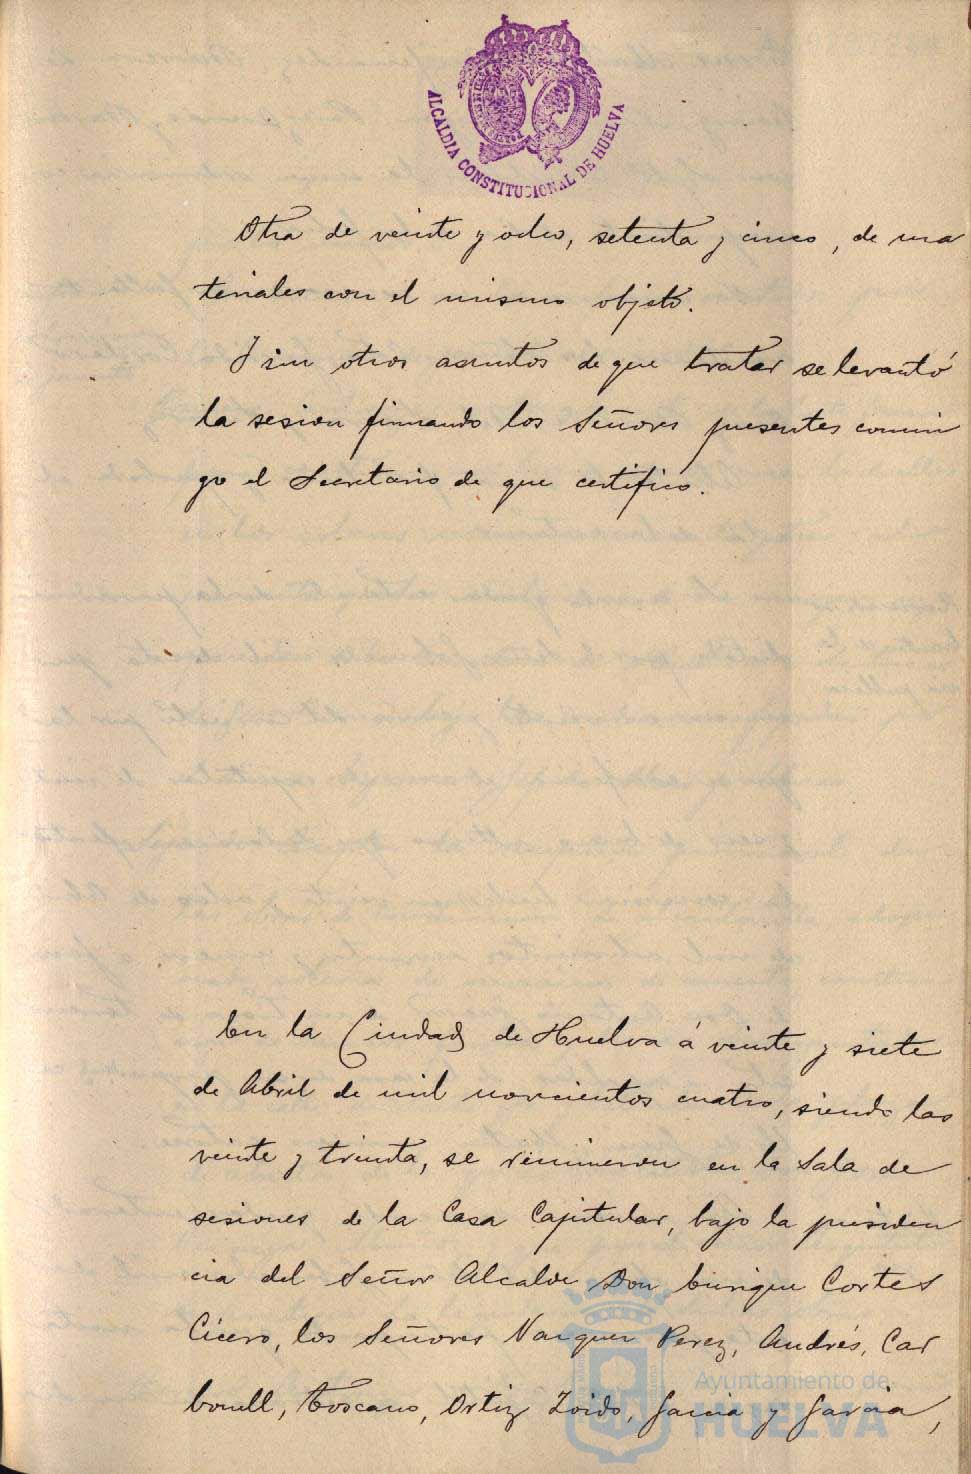 ALCALDIA CONSTITUCIONAL DE HUELVA
Otra de veinte y ocho, setenta y cinco, de ma
teriales con el mismo objeto.
Y sin otros asuntos de que tratar se levantó
la sesion firmando los Señores presentes conmi
go el Secretario de que certifico.
En la Ciudad de Huelva á veinte y siete
de Abril de mil novecientos cuatro, siendo las
veinte y treinta, se reunieron en la Sala de
sesiones de la Casa Capitular, bajo la presiden
cia del Señor Alcalde Don Enrique Cortes
Cicero, los Señores Vazquez Perez, Andrés, Car
bonell, Toscano, Ortiz Zoido, Garcia y Garcia,
Ayuntamiento de
HUELVA